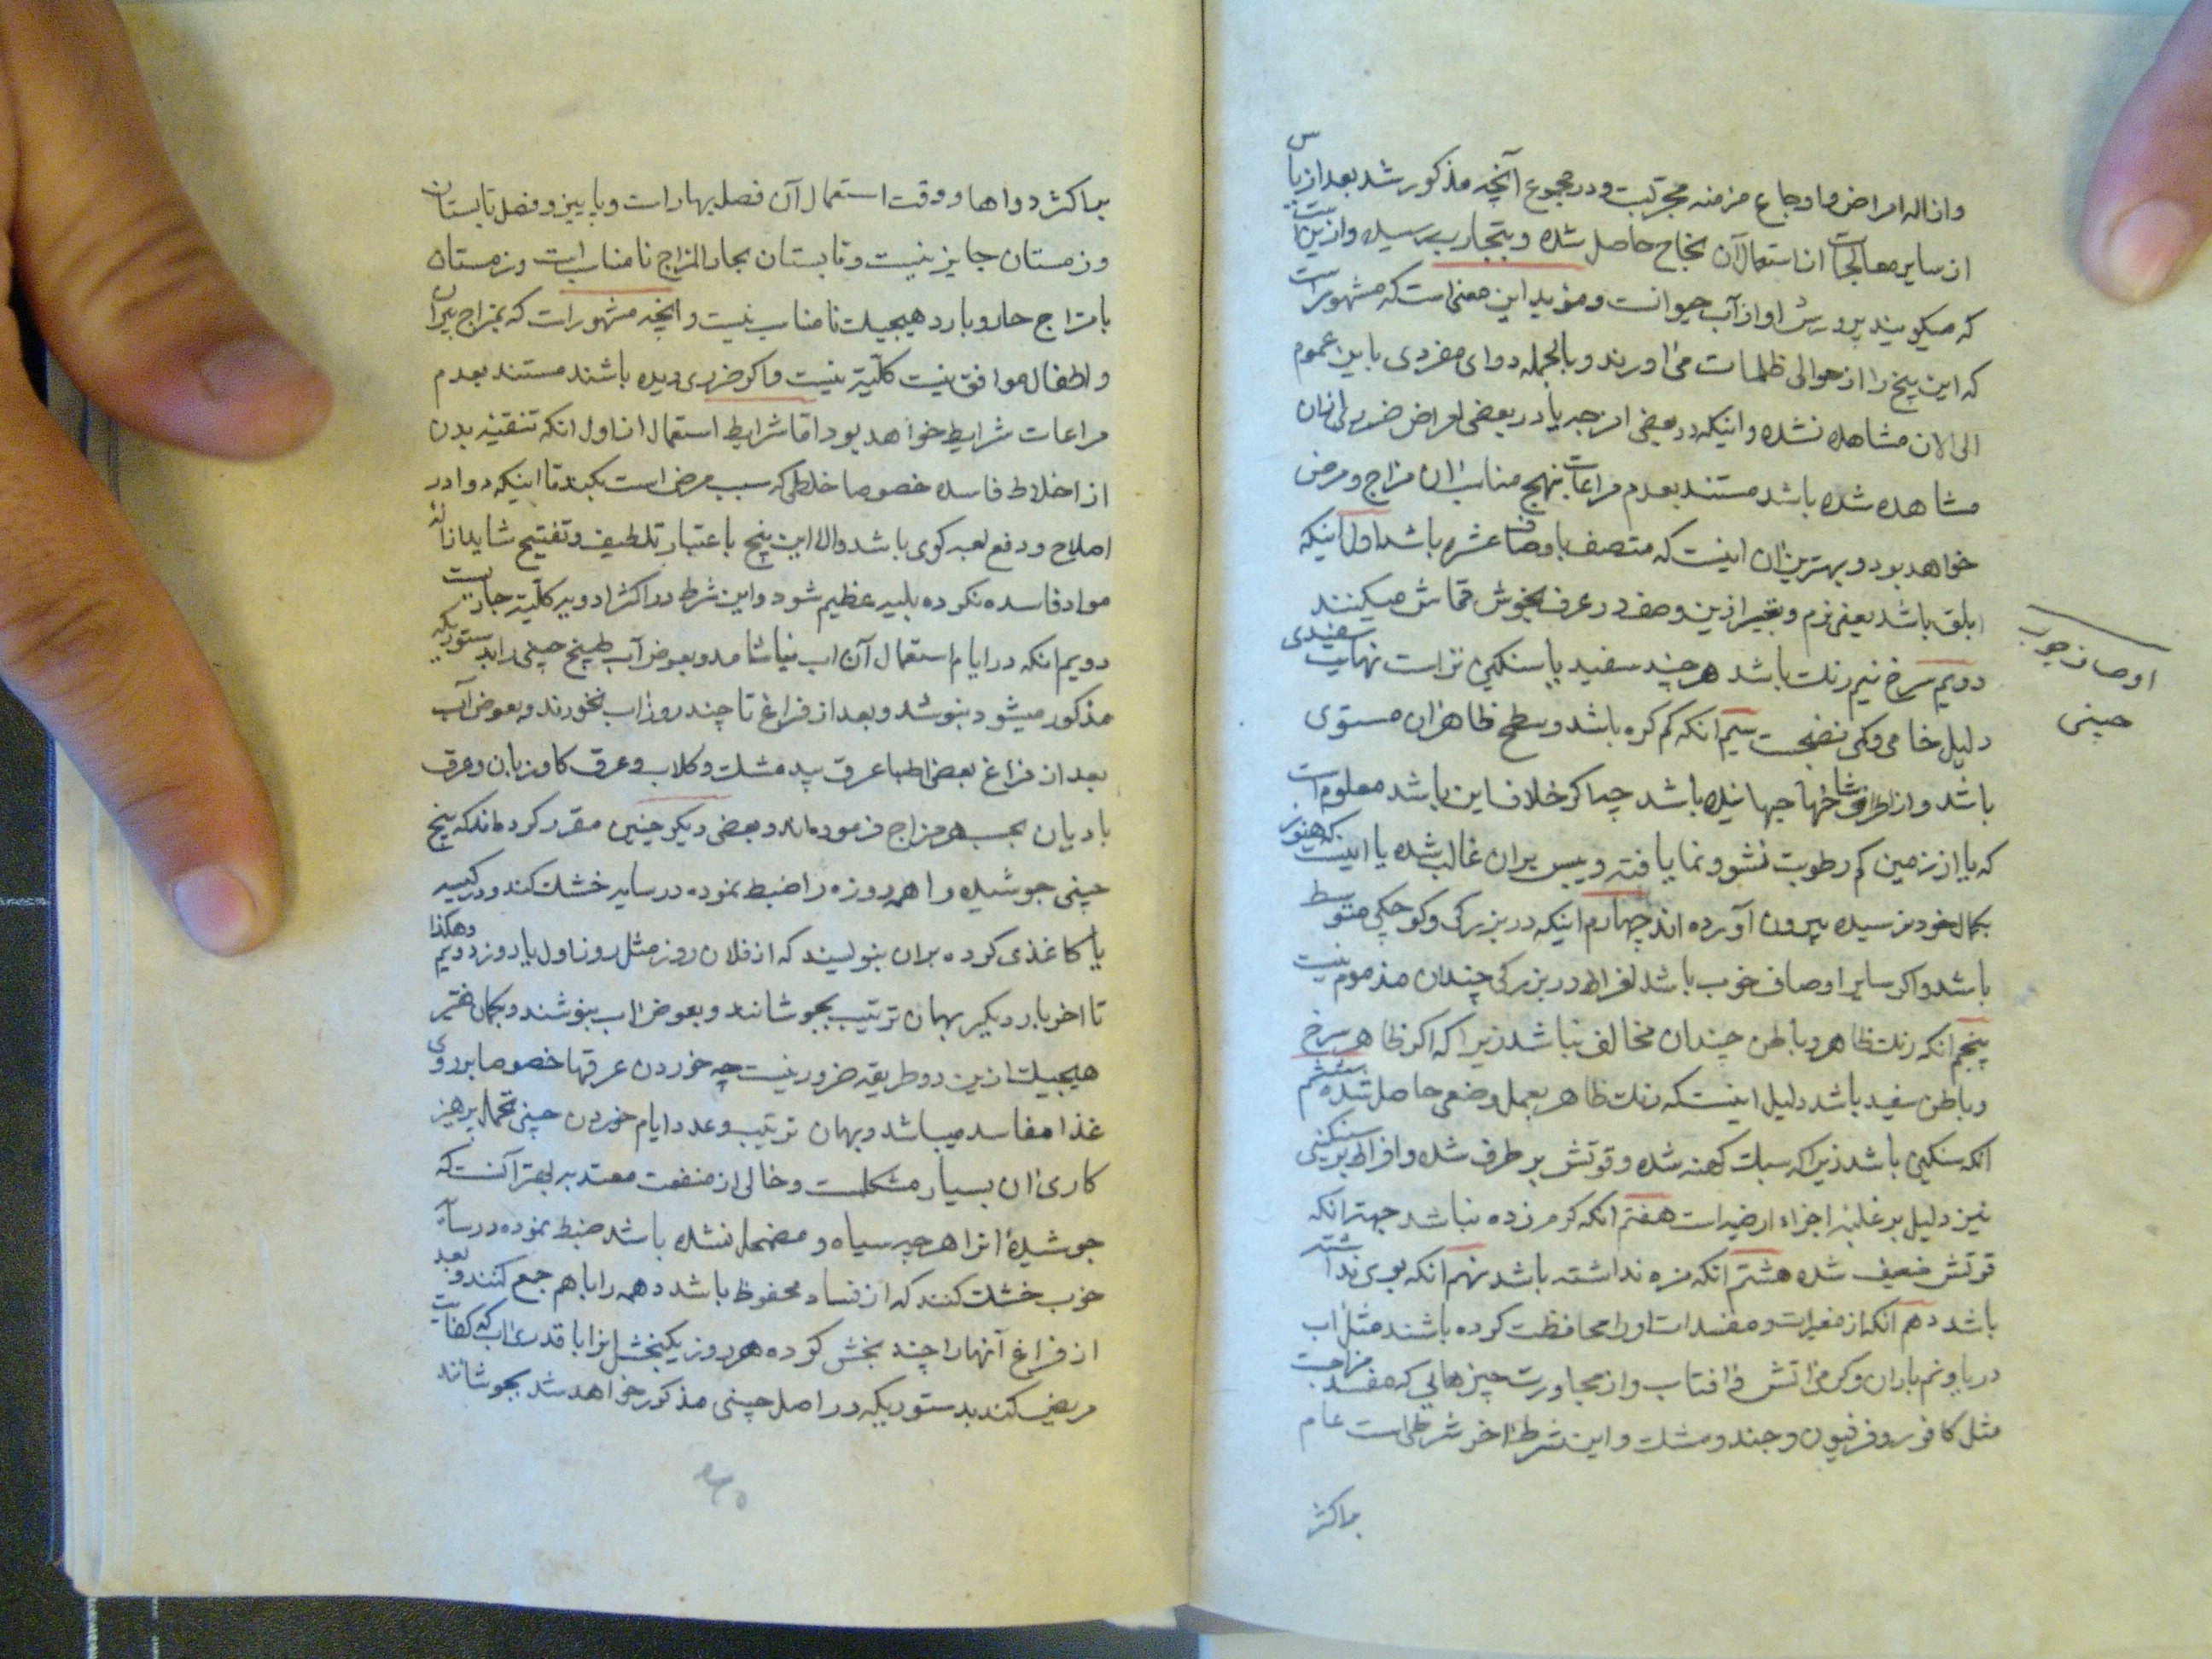 وازاله امراض و اوجاع مزمنه مجرّبست و در مجموع آنچه مذکور شد بعد از یأس
از سایر معالجات از استعمال آن نجاح حاصل شده و بتجارب رسیده و ازین است
که میکویند پرورش او از آب حیوانست و مؤید این معنی است که مشهور است
که این بیخ را از حوالی ظلمات می اورند و بالجمله دوای مفردی باین عموم
الی الان مشاهده نشده و اینکه در بعضی امزجه یا در بعضی امراض ضرری ازان
مشاهده شده باشد مستند بعدم مراعات نهج مناسب ان مزاج و مرض
خواهد بود و بهترین ان اینست که متصف باوصاف عشره باشد اول اینکه
ابلق باشد یعنی نرم و تعبیر ازین وصف در عرف بخوش قماش میکنند
دویم سرخ نیم رنک باشد هر چند سفید یا سنکین تر است نهایت سفیدی
دلیل خامی و کمی نضجست سیم انکه کم کره باشد و سطح ظاهر ان مستوی
باشد و از اطراف شاخها جهانیده باشد چه اکر خلاف این باشد معلوم است
که یا از زمین کم رطوبت نشو و نما یافته و یبس بران غالب شده یا اینست که هنوز
بکمال خود نرسیده بیرون آورده اند چهارم اینکه در بزرکی و کوچکی متوسط
باشد و اکر سایر اوصاف خوب باشد افراط در بزرکی چندان مذموم نیست
پنجم انکه رنک ظاهر و باطن چندان مخالف نباشد زیرا که اکر ظاهر سرخ
و باطن سفید باشد دلیل اینست که رنک ظاهر بعمل وضعی حاصل شده ششم
انکه سنکین باشد زیرا که سبک کهنه شده و قوتش بر طرف شده و افراط بر سنکینی
نیز دلیل بر غلبه اجزاء ارضیه است هفتم انکه کرم زده نباشد جهته انکه
قوتش ضعیف شده هشتم انکه مزه نداشته باشد نهم انکه بوی نداشته
باشد دهم انکه از مغیرات و مفسدات او را محافظت کرده باشند مثل اب
دریا و نم باران و کرمی اتش و افتاب و از مجاورت چیزهایی که مفسد مزاجست
مثل کافور و فرفیون و جند و مشک و این شرط اخر شرطی است عام
براکثر
اوصاف چوب
چینی
براکثر دواها و وقت استعمال آن فصل بهار است و پاییز و فصل تابستان
و زمستان جایز نیست و تابستان بحار المزاج نامناسب است و زمستان
بامزاج حار و بارد هیچیک نامناسب نیست و انچه مشهور است که بمزاج پیران
و اطفال موافق نیست کلّیّة نیست و اکر ضرری دیده باشند مستند بعدم
مراعات شرایط خواهد بود اما شرایط استعمال ان اول انکه تنقیه بدن
از اخلاط فاسده خصوصا خلطی که سبب مرض است بکنند تا اینکه دوا در
اصلاح و دفع لعبه کوی باشد والا این بیخ باعتبار تلطیف و تفتیح شاید ازاله
مواد فاسده نکرده بلیه عظیم شود و این شرط در اکثر ادویه کلّیّة جاریست
دویم انکه در ایام استعمال آن اب نیاشامد و بعوض آب طبیخ چینی را بدستوریکه
مذکور میشود بنوشد و بعد از فراغ تا چند روز اب نخورند و بعوض آب
بعد از فراغ بعضی اطبا عرق بید مشک و کلاب و عرق کاوزبان و عرق
بادیان بحسب هر مزاج فرموده اند و بعضی دیکر چنین مقرر کرده اند که بیخ
چینی جوشیده را همه روزه را ضبط نموده در سایه خشک کند و در کیسه
یا کاغذی کرده بران بنویسند که از فلان روز مثل روز اول یا روز دویم وهکذا
تا اخر بار دیکر بهمان ترتیب بجوشانند و بعوض اب بنوشند و بکمان حقیر
هیچیک ازین دو طریقه ضرور نیست چه خوردن عرقها خصوصا بر روی
غذا مفاسد میباشد و بهمان ترتیب و عدد ایام خوردن چینی تحمل پرهیز
کاری ان بسیار مشکلست و خالی از منفعت معتد به بهتر آنست که
جوشیدهٔ انرا هر چه سیاه و مضمحل نشده باشد ضبط نموده در سایه
خوب خشک کنند که از فساد محفوظ باشد و همه را با هم جمع کنند و بعد
از فراغ آنها را چند بخش کرده هر روز یکبخش انرا با قدری اب که کفایت
مریض کند بدستوریکه در اصل چینی مذکور خواهد شد بجوشانند